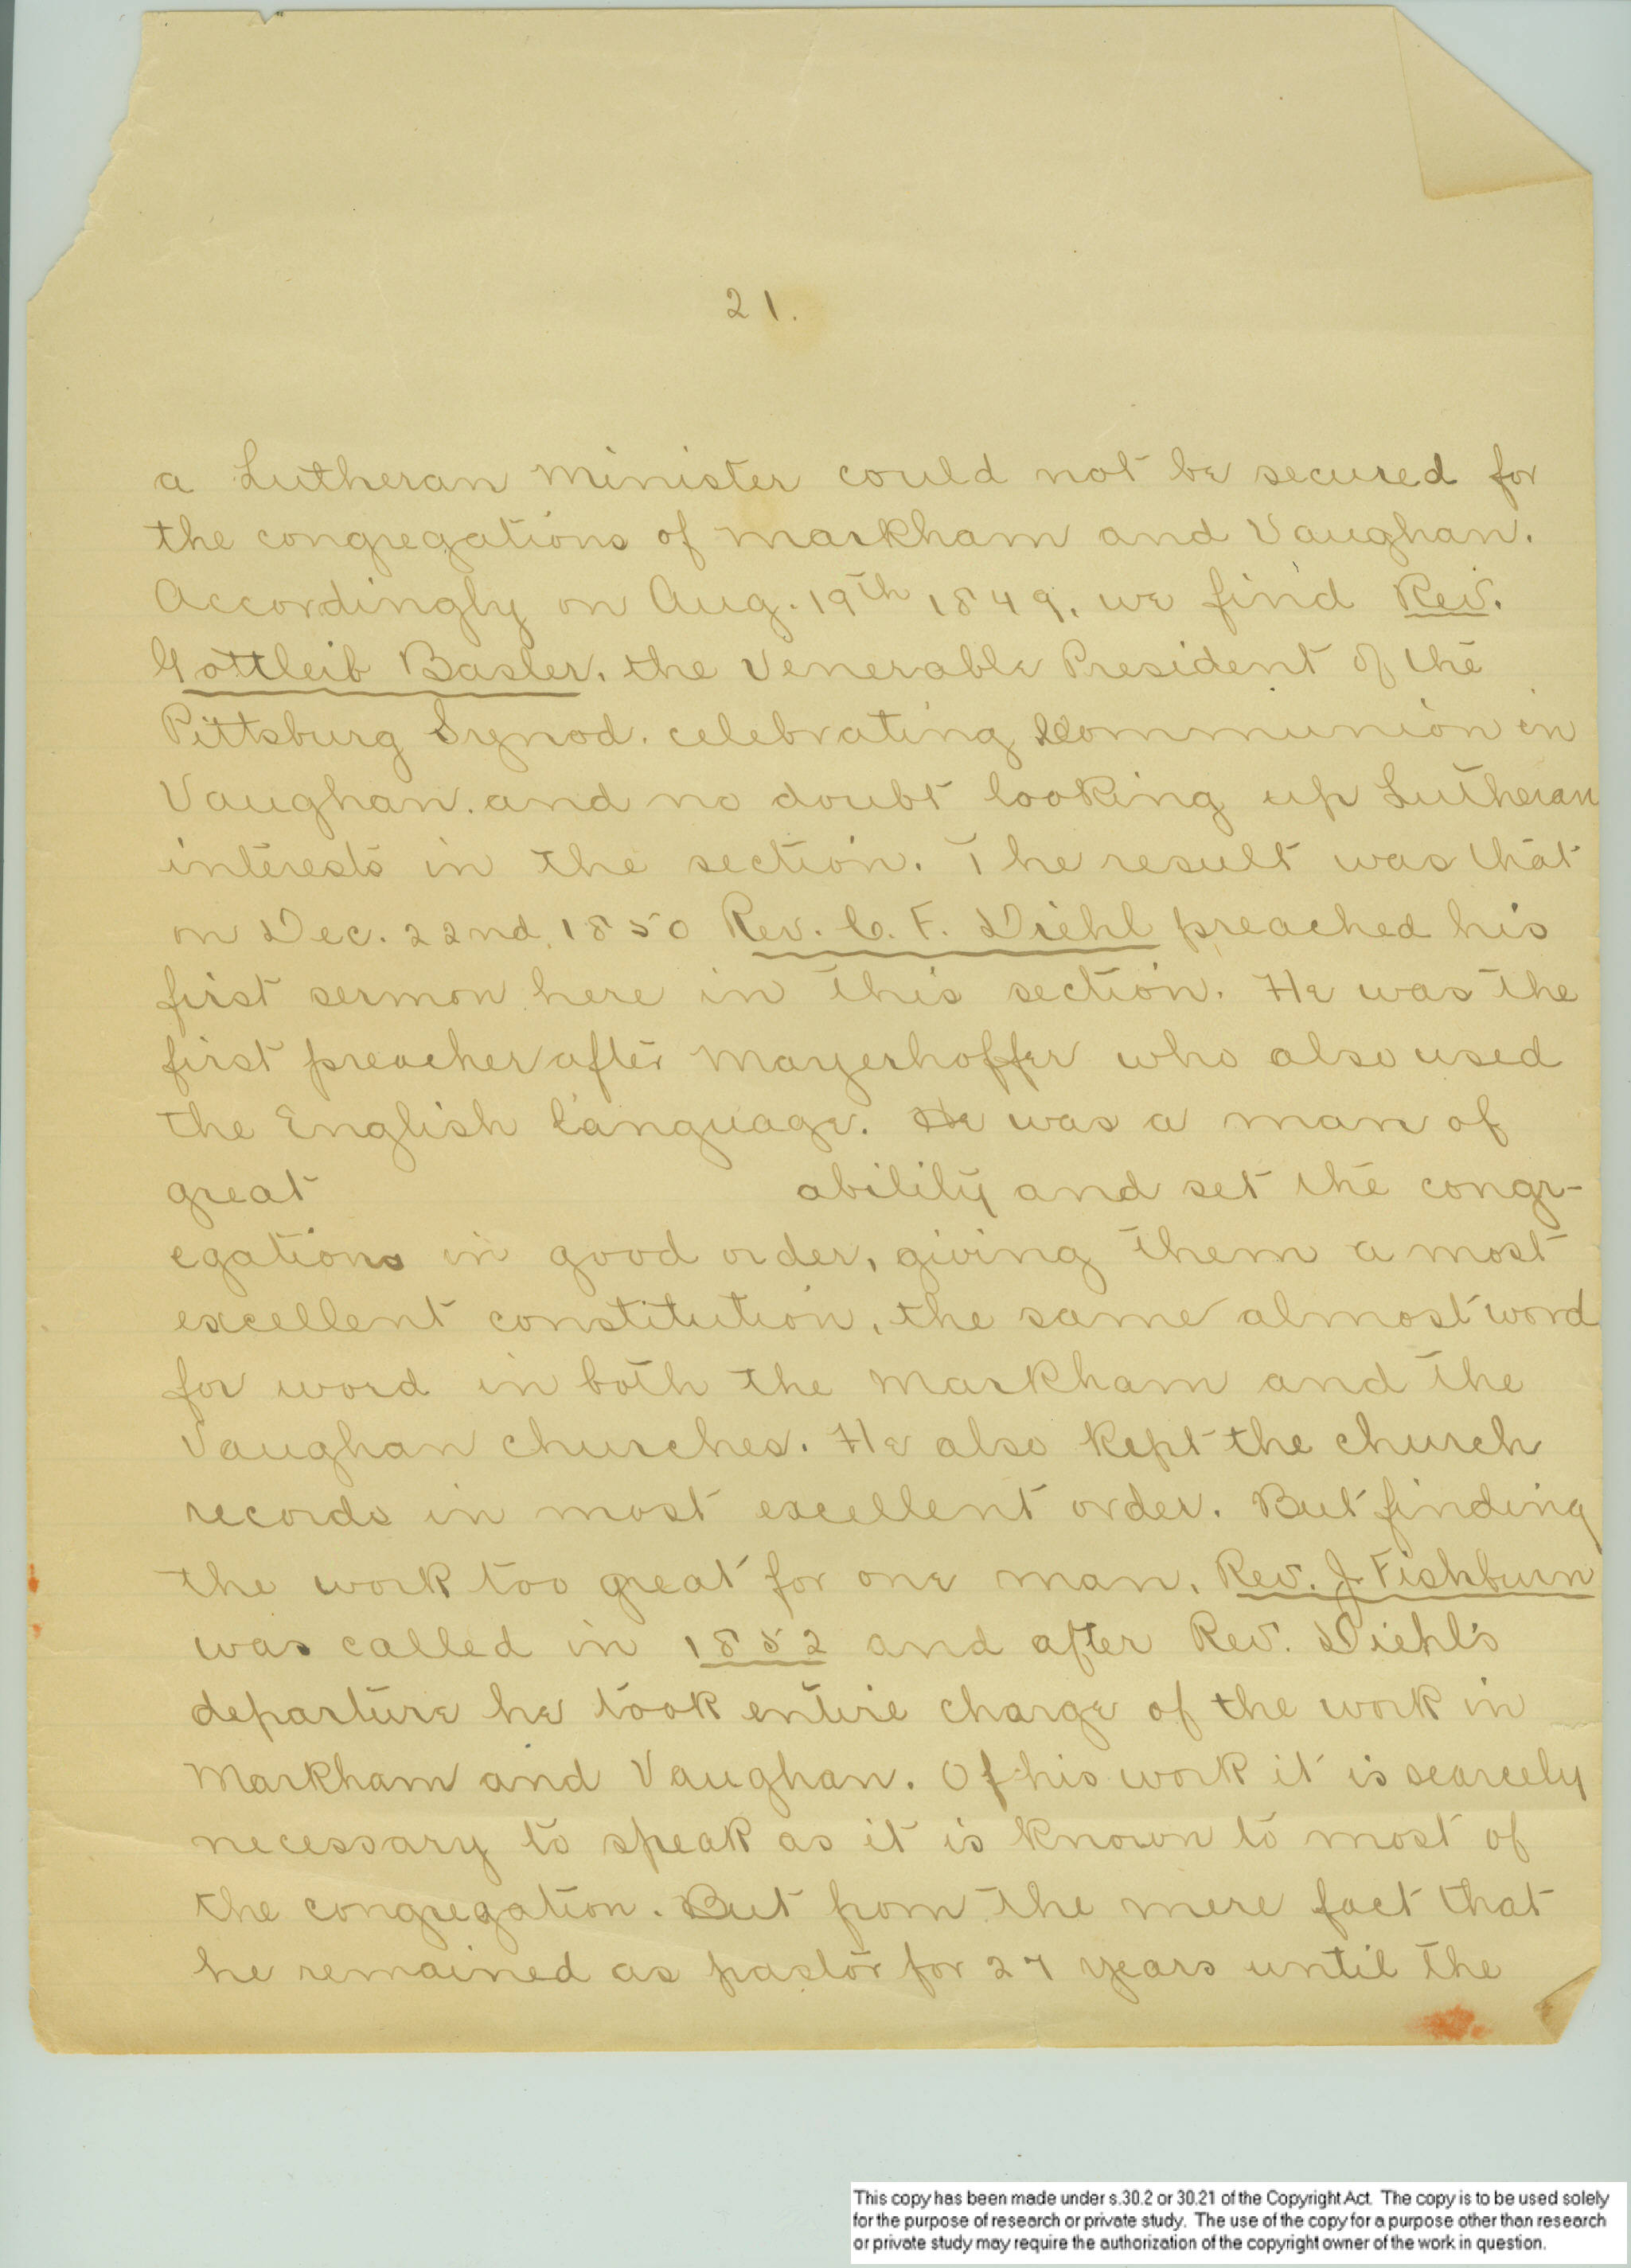 21.
a Lutheran minister could not be secured for
the congregations of Markham and Vaughan.
Accordingly on Aug. 19th 1849, we find Rev.
Gottleib Basler, the venerable President of the
Pittsburg Synod. celebrating Communion in
Vaughan. and no doubt looking up Lutheran
interests in the section. The result was that
on Dec. 22nd, 1850 Rev. C. F. Diehl preached his
first sermon here in this section. He was the
first preacher after Mayerhoffer who also used
the English language. He was a man of
great ability and set the congr-
egations in good order, giving them a most
excellent constitution, the same almost word
for word in both the Markham and the
Vaughan churches. He also kept the church
records in most excellent order. But finding
the work too great for one man, Rev. J. Fishburn
was called in 1852 and after Rev. Diehl's
departure he took entire charge of the work in
Markham and Vaughan. Of his work it is scarcely
necessary to speak as it is known to most of
the congregation. But from the mere fact that
he remained as pastor for 27 years until the
This copy has been made under s.30.2 or 30.21 of the Copyright Act. The copy is to be used solely
for the purpose of research or private study. The use of the copy for a purpose other than research
or private study may require the authorization of the copyright owner of the work in question.